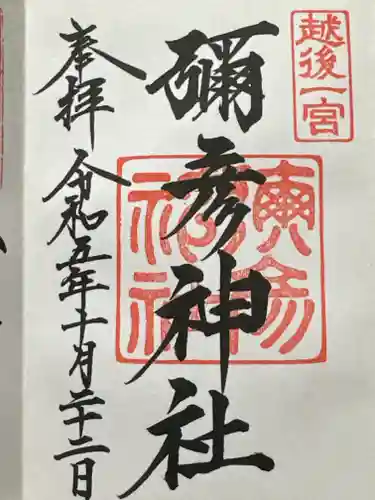 越後一宮
彌彦神社
奉拝
令和五年十月二十二日